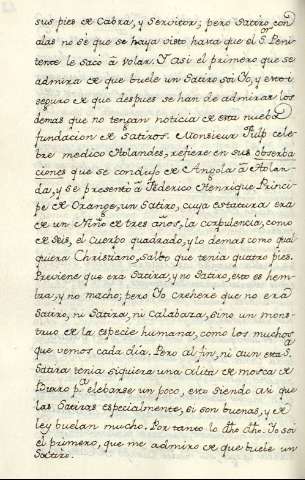 sus pies de Cabra, y Servitor; pero Satiro con
alas no sè que se haya visto hasta que el S. Peni
tente le sacò à volar. Y asi el primero que se
admira de que buele un Satiro soi Yo, y estoi
seguro de que despues se han de admirar los
demas que no tengan noticia de esta nueba
fundacion de Satiros. Monsieur Tulp cele
bre medico Holandes, refiere en sus observa
ciones que se condujo de Angola à Holan
da, y se presentò à Federico Henrique Princi
pe de Orange, un Satiro, cuya estatura era
de un Niño de tres años, la corpulencia, como
de seis, el cuerpo quadrado, y lo demas como qual
quiera Christiano, salbo que tenia quatro pies.
Previene que era Satira, y no Satiro, esto es hem
bra, y no macho; pero Yo creherè que no era
Satiro, ni Satira, ni calabaza, sino un mons
truo de la especie humana, como los muchos
que vemos cada dia. Pero al fin, ni aun esta S.
Satira tenia siquiera una alita de mosca de
Burro p.ª elebarse un poco, esto siendo asi que
las Satiras especialmente, si son buenas, y de
ley buelan mucho. Por tanto lo dho dho. Yo soi
el primero, que me admiro de que buele un
Satiro.